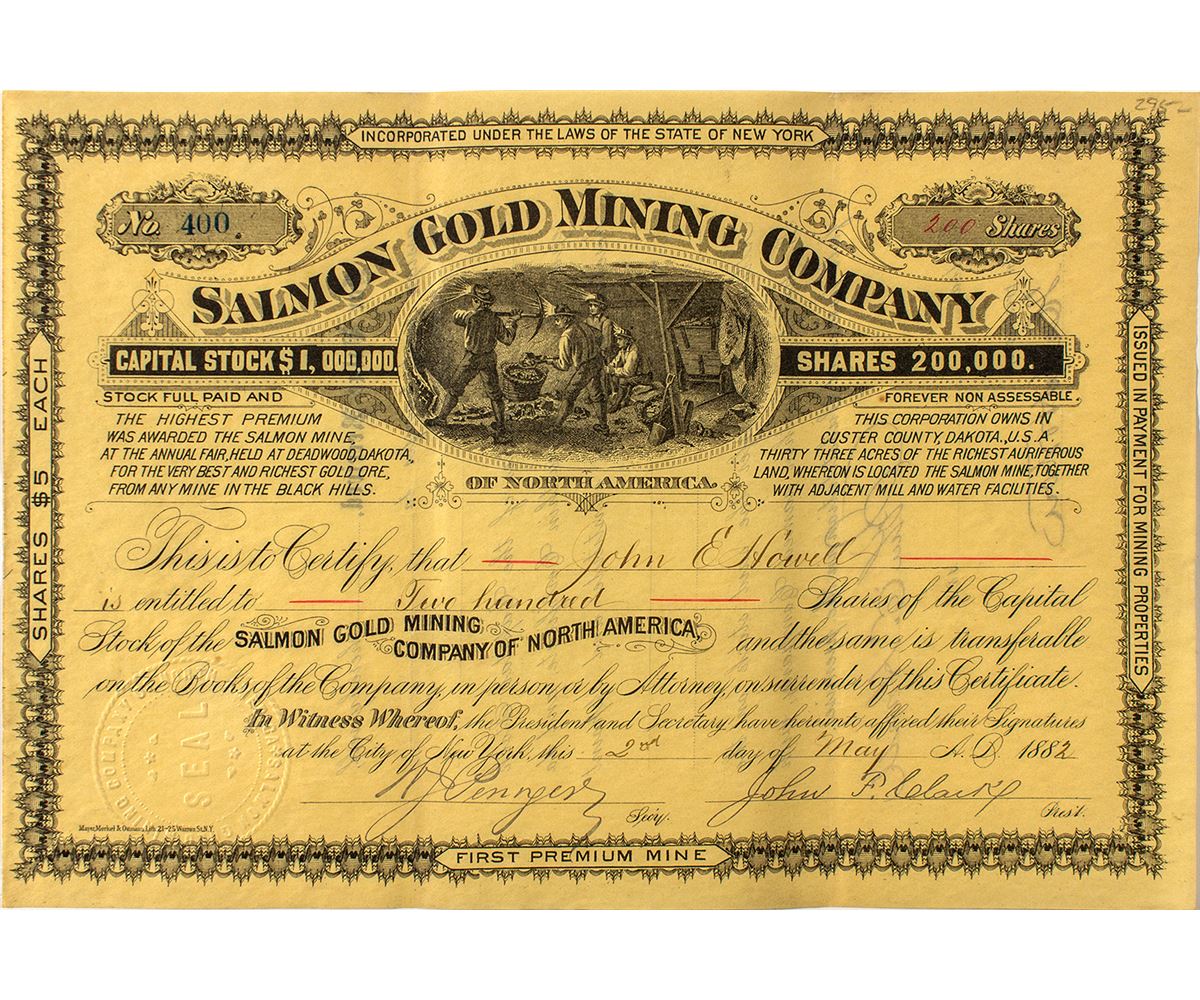 295-
INCORPORATED UNDER THE LAWS OF THE STATE OF NEW YORK
No. 400.
200 Shares
SALMON GOLD MINING COMPANY
CAPITAL STOCK $1,000,000.
SHARES 200,000.
STOCK FULL PAID AND
FOREVER NON ASSESSABLE.
THE HIGHEST PREMIUM
WAS AWARDED THE SALMON MINE,
AT THE ANNUAL FAIR, HELD AT DEADWOOD, DAKOTA,
FOR THE VERY BEST AND RICHEST GOLD ORE,
FROM ANY MINE IN THE BLACK HILLS.
OF NORTH AMERICA.
THIS CORPORATION OWNS IN
CUSTER COUNTY, DAKOTA., U.S.A.
THIRTY THREE ACRES OF THE RICHEST AURIFEROUS
LAND, WHEREON IS LOCATED THE SALMON MINE, TOGETHER
WITH ADJACENT MILL AND WATER FACILITIES.
SHARES $5 EACH
ISSUED IN PAYMENT FOR MINING PROPERTIES
This is to Certify, that John E Howell
is entitled to Two hundred Shares of the Capital
Stock of the SALMON GOLD MINING COMPANY OF NORTH AMERICA, and the same is transferable
on the Books of the Company, in person, or by Attorney, on surrender of this Certificate.
In Witness Whereof, the President and Secretary have hereunto affixed their Signatures
at the City of New York, this 2nd day of May A.D. 1882
Secy.
John F. Clark
Prest.
SEAL
Mayer, Merkel & Ottmann, Lith. 21-25 Warren St. N.Y.
FIRST PREMIUM MINE